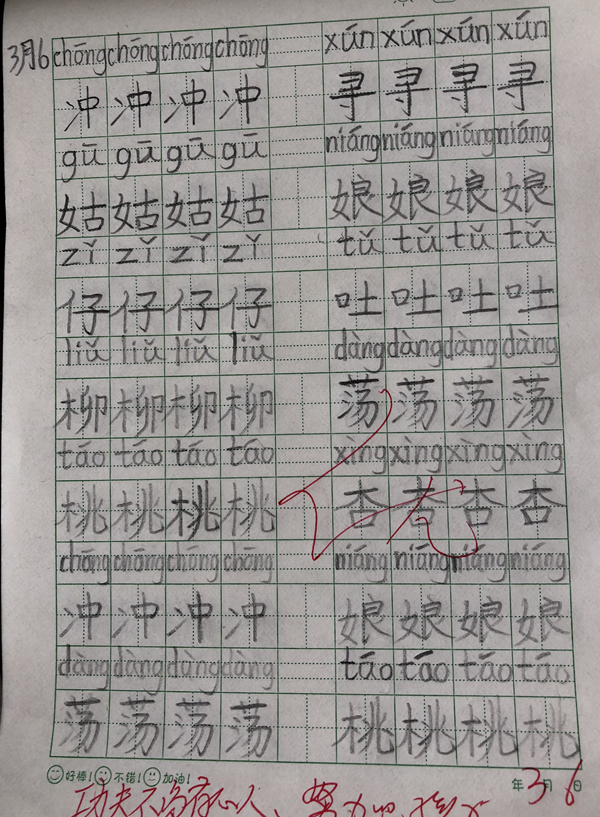 3月6 chōng chōng chōng chōng xún xún xún xún
冲 冲 冲 冲 寻 寻 寻 寻
gū gū gū gū niáng niáng niáng niáng
姑 姑 姑 姑 娘 娘 娘 娘
zǐ zǐ zǐ zǐ tǔ tǔ tǔ tǔ
仔 仔 仔 仔 吐 吐 吐 吐
liǔ liǔ liǔ liǔ dàng dàng dàng dàng
柳 柳 柳 柳 荡 荡 荡 荡
táo táo táo táo xìng xìng xìng xìng
桃 桃 桃 桃 杏 杏 杏 杏
chōng chōng chōng chōng niáng niáng niáng niáng
冲 冲 冲 冲 娘 娘 娘 娘
dàng dàng dàng dàng táo táo táo táo
荡 荡 荡 荡 桃 桃 桃 桃
好棒! 不错! 加油! 年3月6日
功夫不负有心人、